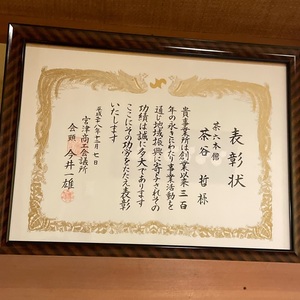 表彰状
茶六本舘
茶谷 哲 様
貴事業所は創業以来三百
年の永きにわたり事業活動を
通じ地域振興に寄与されその
功績は誠に多大であります
ここにその功労をたたえ表彰
いたします
宮津商工会議所
会頭 今井一雄